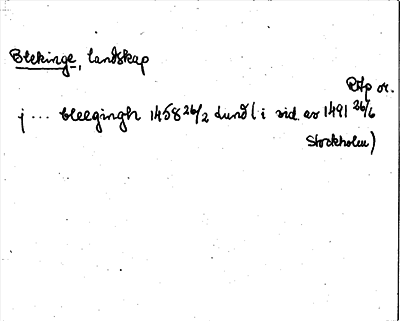 Blekinge, landskap
RAp or.
j ... bleegingh 1458 26/2 Lund (i vid. av 1491 26/6
Stockholm)